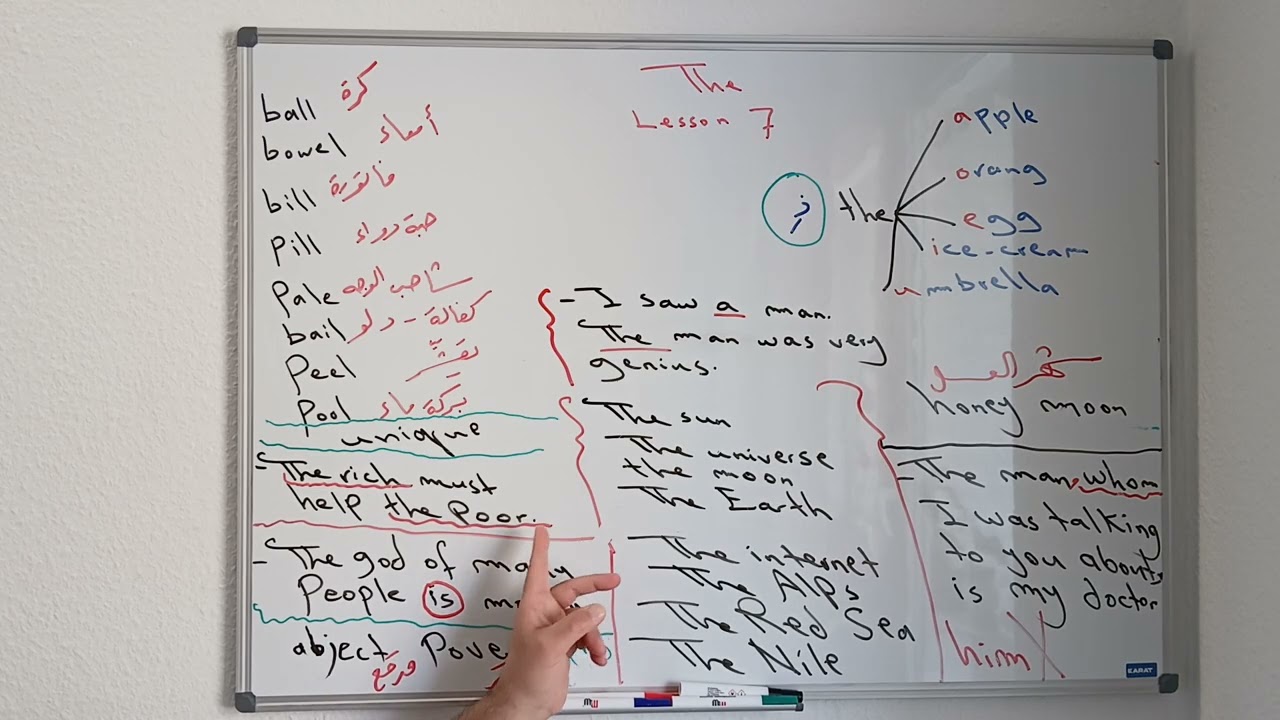 The
Lesson 7
ball كرة
bowel أمعاء
bill فاتورة
pill حبة دواء
Pale شاحب الوجه
bail كفالة - دلو
Peel يقشّر
Pool بركة ماء
unique
- The rich must
help the Poor.
- The god of many
People is
abject Pove
مدقع
ذ the
apple
orang
egg
ice-cream
umbrella
- I saw a man.
The man was very
genius.
The sun
The universe
the moon
The Earth
The internet
The Alps
The Red Sea
The Nile
شهر العسل
honey moon
- The man, whom
I was talking
to you about,
is my doctor
him X
KARAT